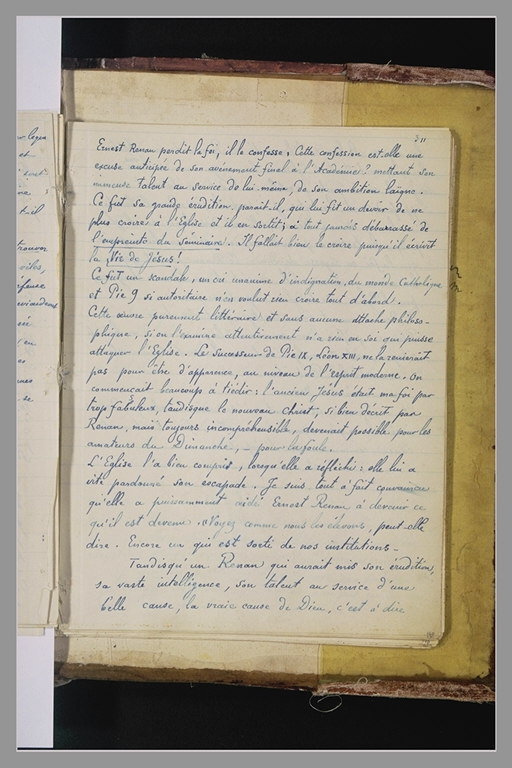 311
Ernest Renan perdit la foi, il le confesse. Cette confession est-elle une
excuse anticipée de son avènement final à l'Académie? mettant son
immense talent au service de lui même, de son ambition laïque.
Ce fut sa grande érudition, parait-il, qui lui fit un devoir de ne
plus croire à l'Eglise et il en sortit, à tout jamais débarrassé de
l'empreinte du Séminaire. Il fallait bien le croire puisqu'il écrivit
la Vie de Jésus!
Ce fut un scandale, un cri unanime d'indignation, du monde Catholique
et Pie 9 si autoritaire n'en voulut rien croire tout d'abord.
Cette œuvre purement littéraire et sans aucune attache philoso-
phique, si on l'examine attentivement n'a rien en soi qui puisse
attaquer l'Eglise. Le successeur de Pie IX, Léon XIII, ne la renierait
pas pour être d'apparence, au niveau de l'esprit moderne. On
commençait beaucoup à tiédir: l'ancien Jésus était ma foi par
trop fabuleux, tandisque le nouveau Christ, si bien décrit par
Renan, mais toujours incompréhensible, devenait possible pour les
amateurs du Dimanche, — pour la foule.
L'Eglise l'a bien compris, lorsqu'elle a réfléchi: elle lui a
vite pardonné son escapade. Je suis tout à fait convaincu
qu'elle a puissamment aidé Ernest Renan à devenir ce
qu'il est devenu. «Voyez comme nous les élevons, peut-elle
dire. Encore un qui est sorti de nos institutions—
Tandisqu'un Renan qui aurait mis son érudition,
sa vaste intelligence, son talent au service d'une
belle cause, la vraie cause de Dieu, c'est à dire